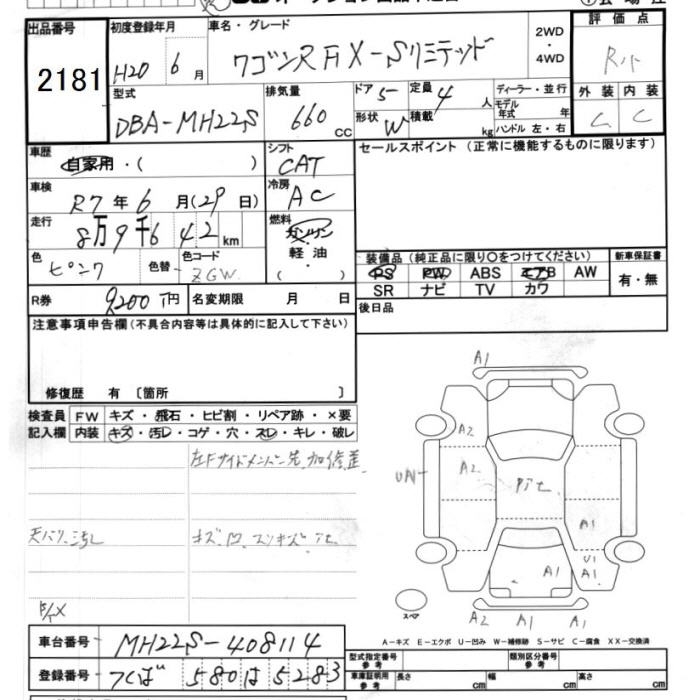 出品番号 2181
初度登録年月 H20年 6月
車名・グレード ワゴンR FX-Sリミテッド
2WD ・ 4WD
評価点
外装 C 内装 C
型式 DBA-MH22S
排気量 660 cc
ドア 5 定員 4 人
形状 W 積載 kg
ディーラー・並行
モデル年式 年
ハンドル 左・右
車歴 自家用・( )
シフト CAT
セールスポイント (正常に機能するものに限ります)
車検 R7年 6月(29日)
冷房 AC
走行 8万9千642 km
燃料 ガソリン 軽油 ( )
色 ピンク 色替 色コード ZGW
装備品 (純正品に限り〇をつけてください) 新車保証書
PS PW ABS エアB AW
SR ナビ TV カワ
有・無
R券 9200円 名変期限 月 日
後日品
注意事項申告欄(不具合内容等は具体的に記入して下さい)
修復歴 有 〔箇所 〕
検査員記入欄
FW キズ・飛石・ヒビ割・リペア跡・×要
内装 キズ・汚レ・コゲ・穴・スレ・キレ・破レ
左Fサイドメンバー先
天バリ汚レ
A1
A2
A2
A1
U1
A1
A1
A2 A1 A1
スペア
A-キズ E-エクボ U-凹み W-補修跡 S-サビ C-腐食 XX-交換済
車台番号 MH22S-408114
登録番号 つくば 580 は 5283
型式指定番号 参考 類別区分番号 参考
車庫証明用 参考 長さ cm 幅 cm 高さ cm